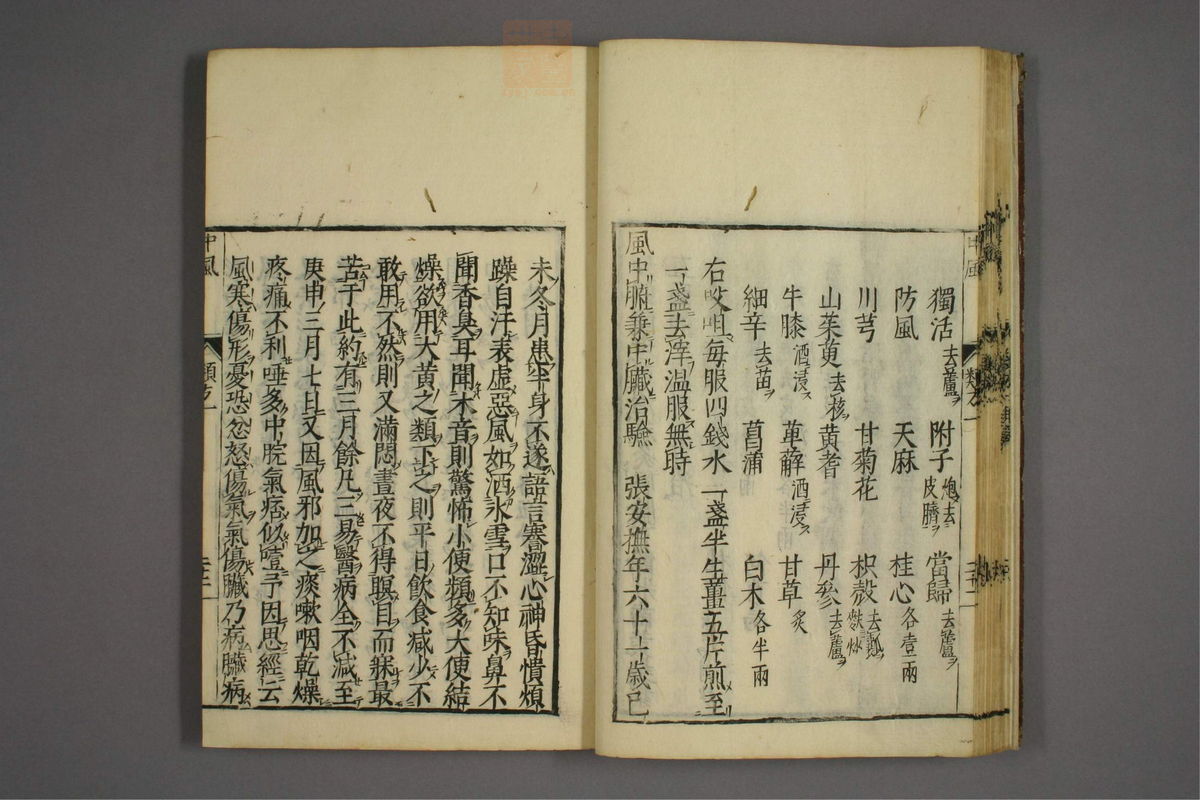 獨活去蘆 附子炮去皮臍 當歸去蘆
防風 天麻 桂心各壹兩
川芎 甘菊花 枳殼去瓤麩炒
山茱萸去核 黄耆 丹參去蘆
牛膝酒浸 萆薢酒浸 甘草炙
細辛去苗 菖蒲 白木各半兩
右㕮咀每服四錢水一盞半生薑五片煎至
一盞去滓温服無時
風中腑兼中臟治驗 張安撫年六十一歲己
未冬月患半身不遂語言蹇澀心神昏憒煩
躁自汗表虛惡風如洒氷雪口不知味鼻不
聞香臭耳聞木音則驚怖小便頻多大便結
燥欲用大黄之類下之則平日飲食减少不
敢用不然則又滿悶晝夜不得瞑目而寐最
苦于此約有三月餘凡三易醫病全不减至
庚申三月七日又因風邪加之痰嗽咽乾燥
疼痛不利唾多中脘氣痞似噎予因思經云
風寒傷形憂恐忿怒傷氣氣傷臟乃病臟病
中風 類方一 三十二